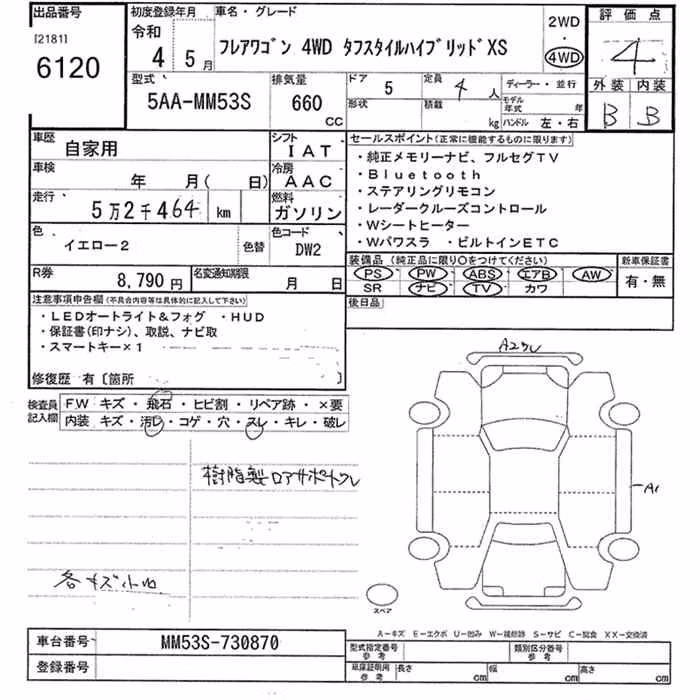 出品番号
[2181]
6120
初度登録年月
令和
4 5月
車名・グレード
フレアワゴン 4WD タフスタイルハイブリッドXS
2WD
・
4WD
評価点
4
外装 内装
B B
型式
5AA-MM53S
排気量
660
CC
ドア
5
定員
4人
形状
積載
kg
ディーラー・並行
モデル年式 年
ハンドル 左・右
車歴
自家用
シフト
IAT
車検
年 月( 日)
冷房
AAC
走行
5万2千464 km
燃料
ガソリン
色
イエロー2
色替
色コード
DW2
R券
8,790円
名変通知期限
月 日
セールスポイント(正常に機能するものに限ります)
・純正メモリーナビ、フルセグTV
・Bluetooth
・ステアリングリモコン
・レーダークルーズコントロール
・Wシートヒーター
・Wパワスラ ・ビルトインETC
装備品(純正品に限り○をつけてください)
PS PW ABS エアB AW
SR ナビ TV カワ
新車保証書
有・無
後日品
注意事項申告欄(不具合内容等は具体的に記入して下さい)
・LEDオートライト&フォグ ・HUD
・保証書(印ナシ)、取説、ナビ取
・スマートキー×1
修復歴 有〔箇所 〕
検査員記入欄
FW キズ・飛石・ヒビ割・リペア跡・×要
内装 キズ・汚レ・コゲ・穴・スレ・キレ・破レ
樹脂製ロアサポートクレ
各キズ小凹
A2クレ
A1
スペア
A-キズ E-エクボ U-凹み W-補修跡 S-サビ C-腐食 XX-交換済
車台番号
MM53S-730870
登録番号
型式指定番号
参考
類別区分番号
参考
車庫証明用
参考
長さ cm
幅 cm
高さ cm